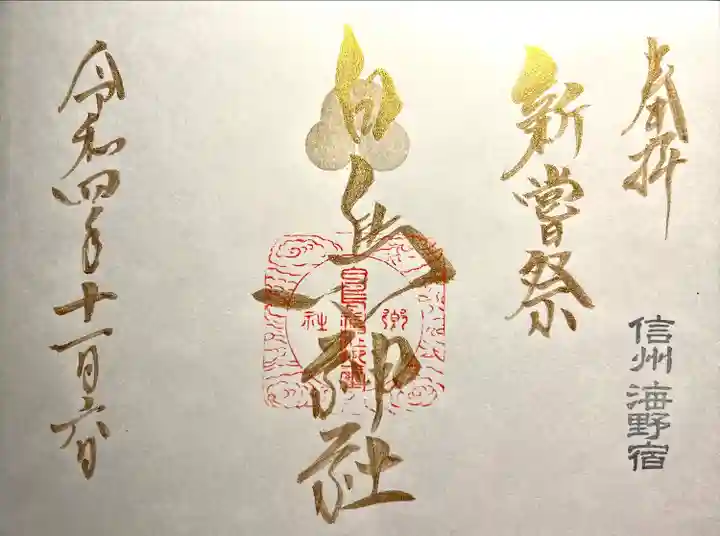 奉拝
信州 海野宿
新嘗祭
白鳥神社
郷
社
白鳥神社御璽
令和四年十一月六日